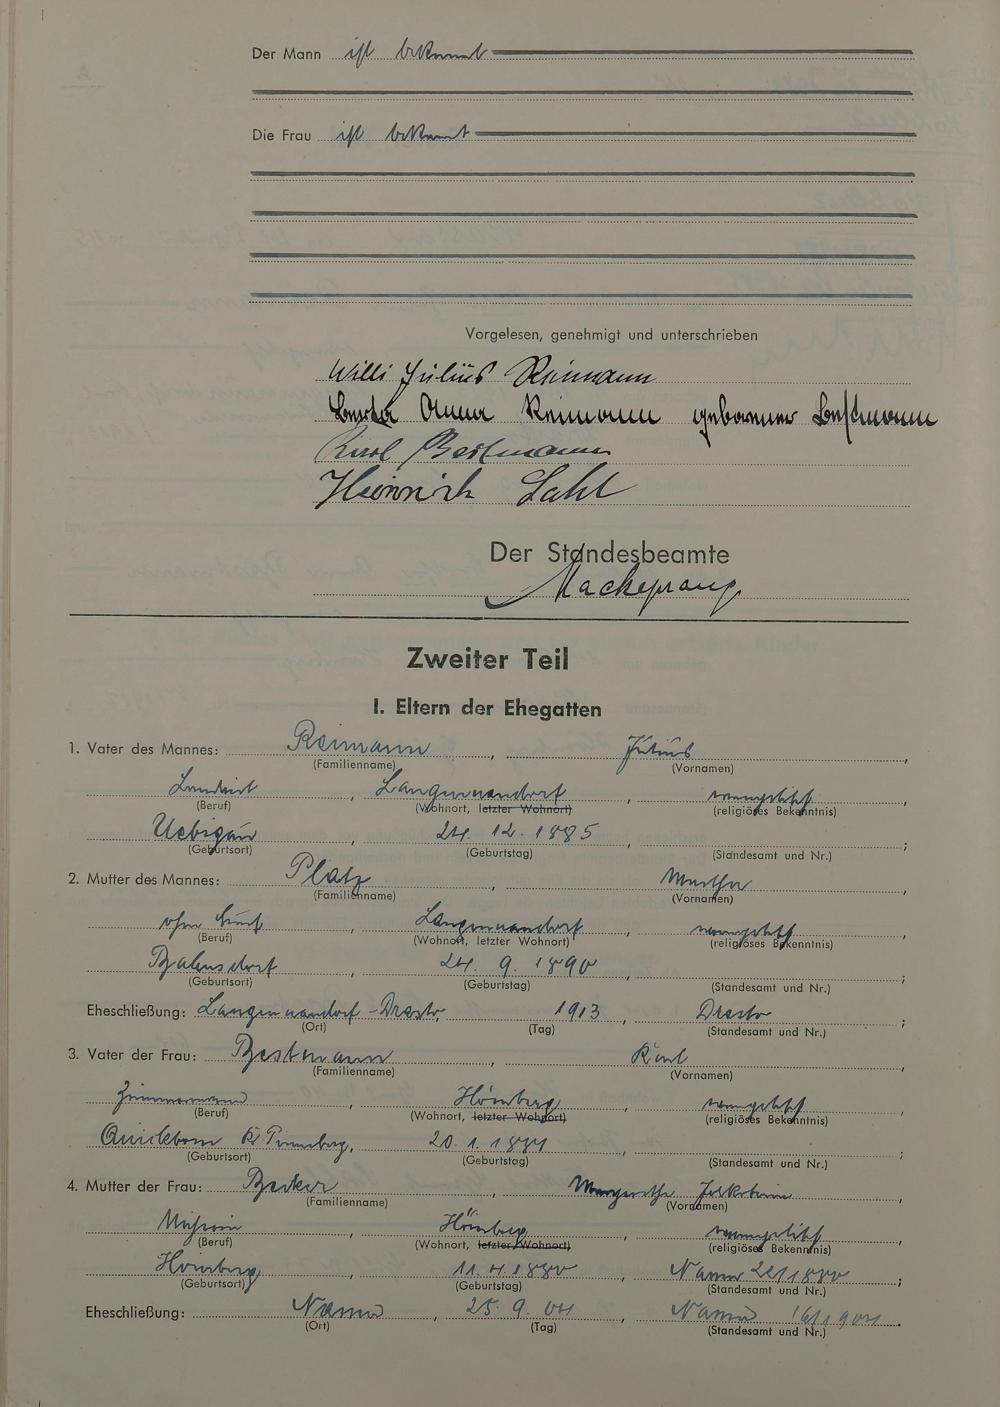 Der Mann ist bekannt
Die Frau ist bekannt
Vorgelesen, genehmigt und unterschrieben
Willi Julius Reimann
Anna Reimann geborener Bestmann
Karl Bestmann
Heinrich Sahl
Der Standesbeamte
Mackeprang
Zweiter Teil
I. Eltern der Ehegatten
1. Vater des Mannes: Reimann, Julius,
(Familienname) (Vornamen)
Landwirt, Langennaundorf, evangelisch
(Beruf) (Wohnort, letzter Wohnort) (religiöses Bekenntnis)
Uebigau, 24. 12. 1885, ;
(Geburtsort) (Geburtstag) (Standesamt und Nr.)
2. Mutter des Mannes: Platz, Martha,
(Familienname) (Vornamen)
ohne Beruf, Langennaundorf, evangelisch,
(Beruf) (Wohnort, letzter Wohnort) (religiöses Bekenntnis)
24. 9. 1890, ;
(Geburtsort) (Geburtstag) (Standesamt und Nr.)
Eheschließung: Langennaundorf - 1913, ;
(Ort) (Tag) (Standesamt und Nr.)
3. Vater der Frau: Bestmann, Karl,
(Familienname) (Vornamen)
Zimmermann, evangelisch,
(Beruf) (Wohnort, letzter Wohnort) (religiöses Bekenntnis)
Quickborn Kr. Pinneberg, 20. 1. 1881, ;
(Geburtsort) (Geburtstag) (Standesamt und Nr.)
4. Mutter der Frau: Becker, Margaretha,
(Familienname) (Vornamen)
evangelisch,
(Beruf) (Wohnort, letzter Wohnort) (religiöses Bekenntnis)
11. 4. 1880, ;
(Geburtsort) (Geburtstag) (Standesamt und Nr.)
Eheschließung: 25. 9. 04,
(Ort) (Tag) (Standesamt und Nr.)